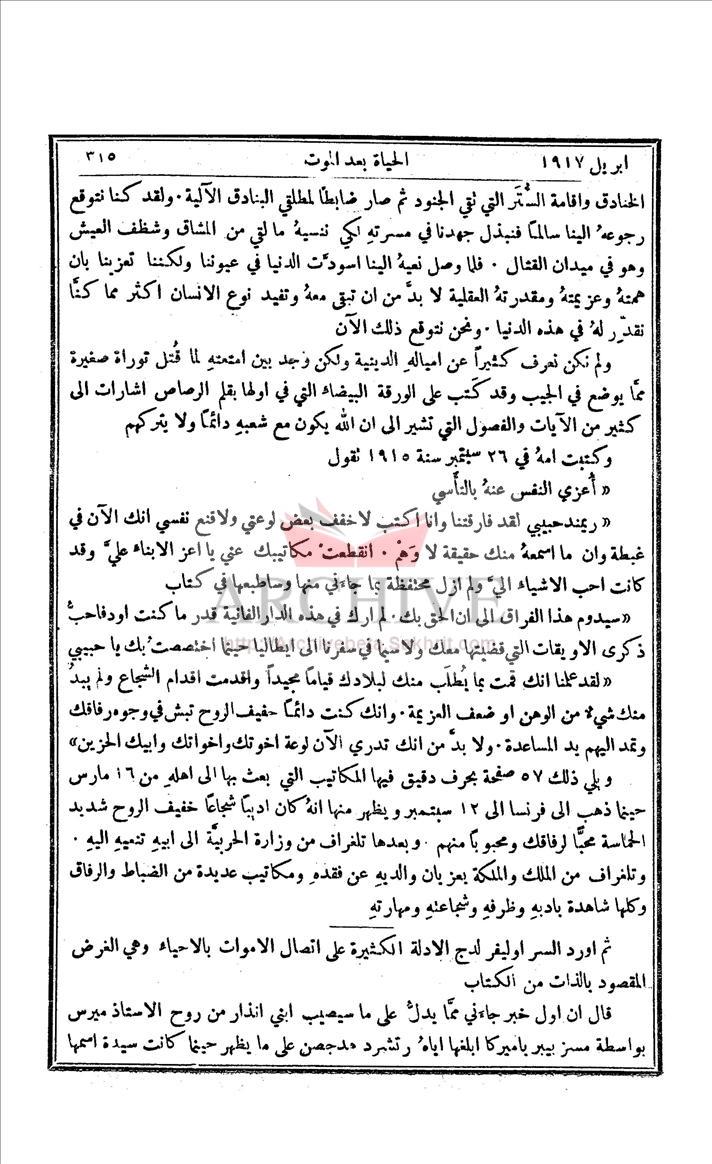 ابريل ١٩١٧ الحياة بعد الموت ٣١٥
الخنادق واقامة السُّتَر التي تقي الجنود ثم صار ضابطاً لمطلقي البنادق الآلية · ولقد كنا نتوقع
رجوعهُ الينا سالماً فنبذل جهدنا في مسرتهِ لكي ننسيهُ ما لقي من المشاق وشظف العيش
وهو في ميدان القتال · فلما وصل نعيهُ الينا اسودَّت الدنيا في عيوننا ولكننا تعزينا بان
همتهُ وعزيمتهُ ومقدرتهُ العقلية لا بدَّ من ان تبقى معهُ وتفيد نوع الانسان اكثر مما كنَّا
نقدّر لهُ في هذه الدنيا · ونحن نتوقع ذلك الآن
ولم نكن نعرف كثيراً عن اميالهِ الدينية ولكن وجد بين امتعتهِ لما قُتل توراة صغيرة
ممَّا يوضع في الجيب وقد كَتب على الورقة البيضاء التي في اولها بقلم الرصاص اشارات الى
كثير من الآيات والفصول التي تشير الى ان الله يكون مع شعبهِ دائماً ولا يتركهم
وكتبت امهُ في ٢٦ سبتمبر سنة ١٩١٥ تقول
« أُعزي النفس عنهُ بالتأسي
« ريمند حبيبي لقد فارقتنا وانا اكتب لاخفف بعض لوعتي ولاقنع نفسي انك الآن في
غبطة وان ما اسمعهُ منك حقيقة لا وَهْم · انقطعتْ مكاتيبك عني يا اعز الابناء عليَّ وقد
كانت احب الاشياء اليَّ ولم ازل محتفظة بما جاءني منها وساطبعها في كتاب
« سيدوم هذا الفراق الى ان الحق بك · لم ارك في هذه الدار الفانية قدر ما كنت اود فاحبُّ
ذكرى الاويقات التي قضيتها معك ولا سيما في سفرنا الى ايطاليا حينما اختصصتُ بك يا حبيبي
« لقد علمنا انك قمت بما يُطلَب منك لبلادك قياماً مجيداً واقدمت اقدام الشجاع ولم يبدُ
منك شيءٌ من الوهن او ضعف العزيمة · وانك كنت دائماً خفيف الروح تبش في وجوه رفاقك
وتمد اليهم يد المساعدة · ولا بدَّ من انك تدري الآن لوعة اخوتك واخواتك وابيك الحزين »
ويلي ذلك ٥٧ صفحة بحرف دقيق فيها المكاتيب التي بعث بها الى اهلهِ من ١٦ مارس
حينما ذهب الى فرنسا الى ١٢ سبتمبر ويظهر منها انهُ كان اديباً شجاعاً خفيف الروح شديد
الحماسة محبًّا لرفاقك ومحبوباً منهم · وبعدها تلغراف من وزارة الحربيَّة الى ابيهِ تنعيهِ اليهِ ·
وتلغراف من الملك والملكة يعزيان والديهِ عن فقدهِ ومكاتيب عديدة من الضباط والرفاق
وكلها شاهدة بادبهِ وظرفهِ وشجاعتهِ ومهارتهِ
ثم اورد السر اوليفر لدج الادلة الكثيرة على اتصال الاموات بالاحياء وهي الغرض
المقصود بالذات من الكتاب
قال ان اول خبر جاءني ممَّا يدلُّ على ما سيصيب ابني انذار من روح الاستاذ ميرس
بواسطة مسز بيبر باميركا ابلغها اياهُ رتشرد هدجصن على ما يظهر حينما كانت سيدة اسمها
ARCHIVE
http://Archivebeta.Sakhrit.com